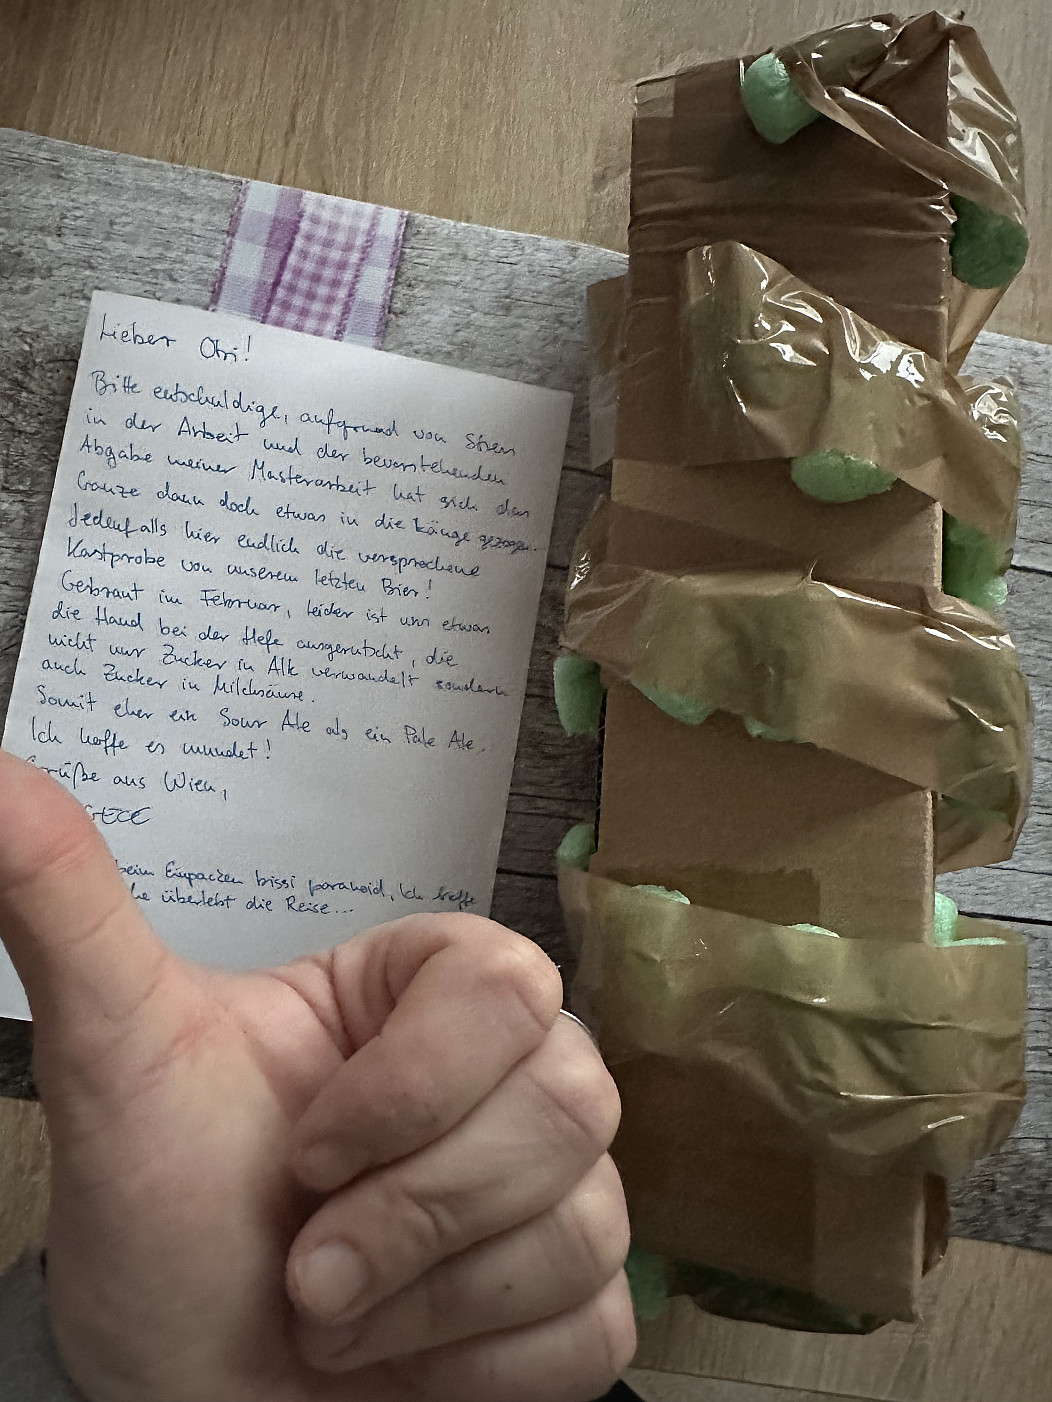 Lieber Obi!
Bitte entschuldige, aufgrund von Stress
in der Arbeit und der bevorstehenden
Abgabe meiner Masterarbeit hat sich das
Ganze dann doch etwas in die Länge gezogen.
Jedenfalls hier endlich die versprochene
Kostprobe von unserem letzten Bier!
Gebraut im Februar, leider ist uns etwas
die Hand bei der Hefe ausgerutscht, die
nicht nur Zucker in Alk verwandelt sondern
auch Zucker in Milchsäure.
Somit eher ein Sour Ale als ein Pale Ale.
Ich hoffe es mundet!
Grüße aus Wien,
beim Einpacken bissi paranoid, Ich hoffe
überlebt die Reise...